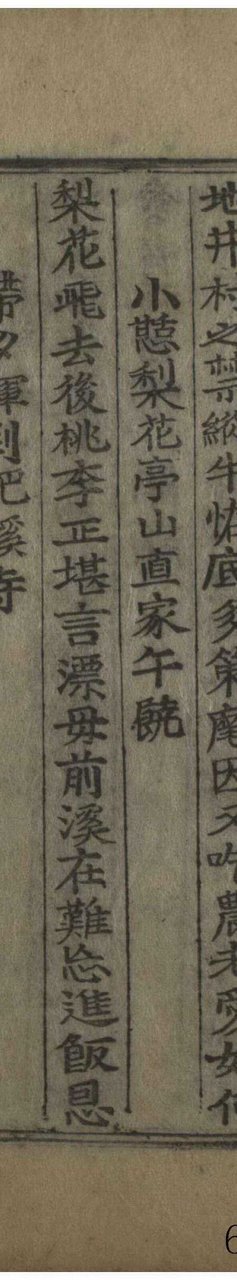 地井村之禁縱牛怪底多第麾因又吠農老愛如何
小憩梨花亭山直家午饒
梨花飛去後桃李正堪言漂母前溪在難忘進飯恩
帶夕暉到肥溪寺
6